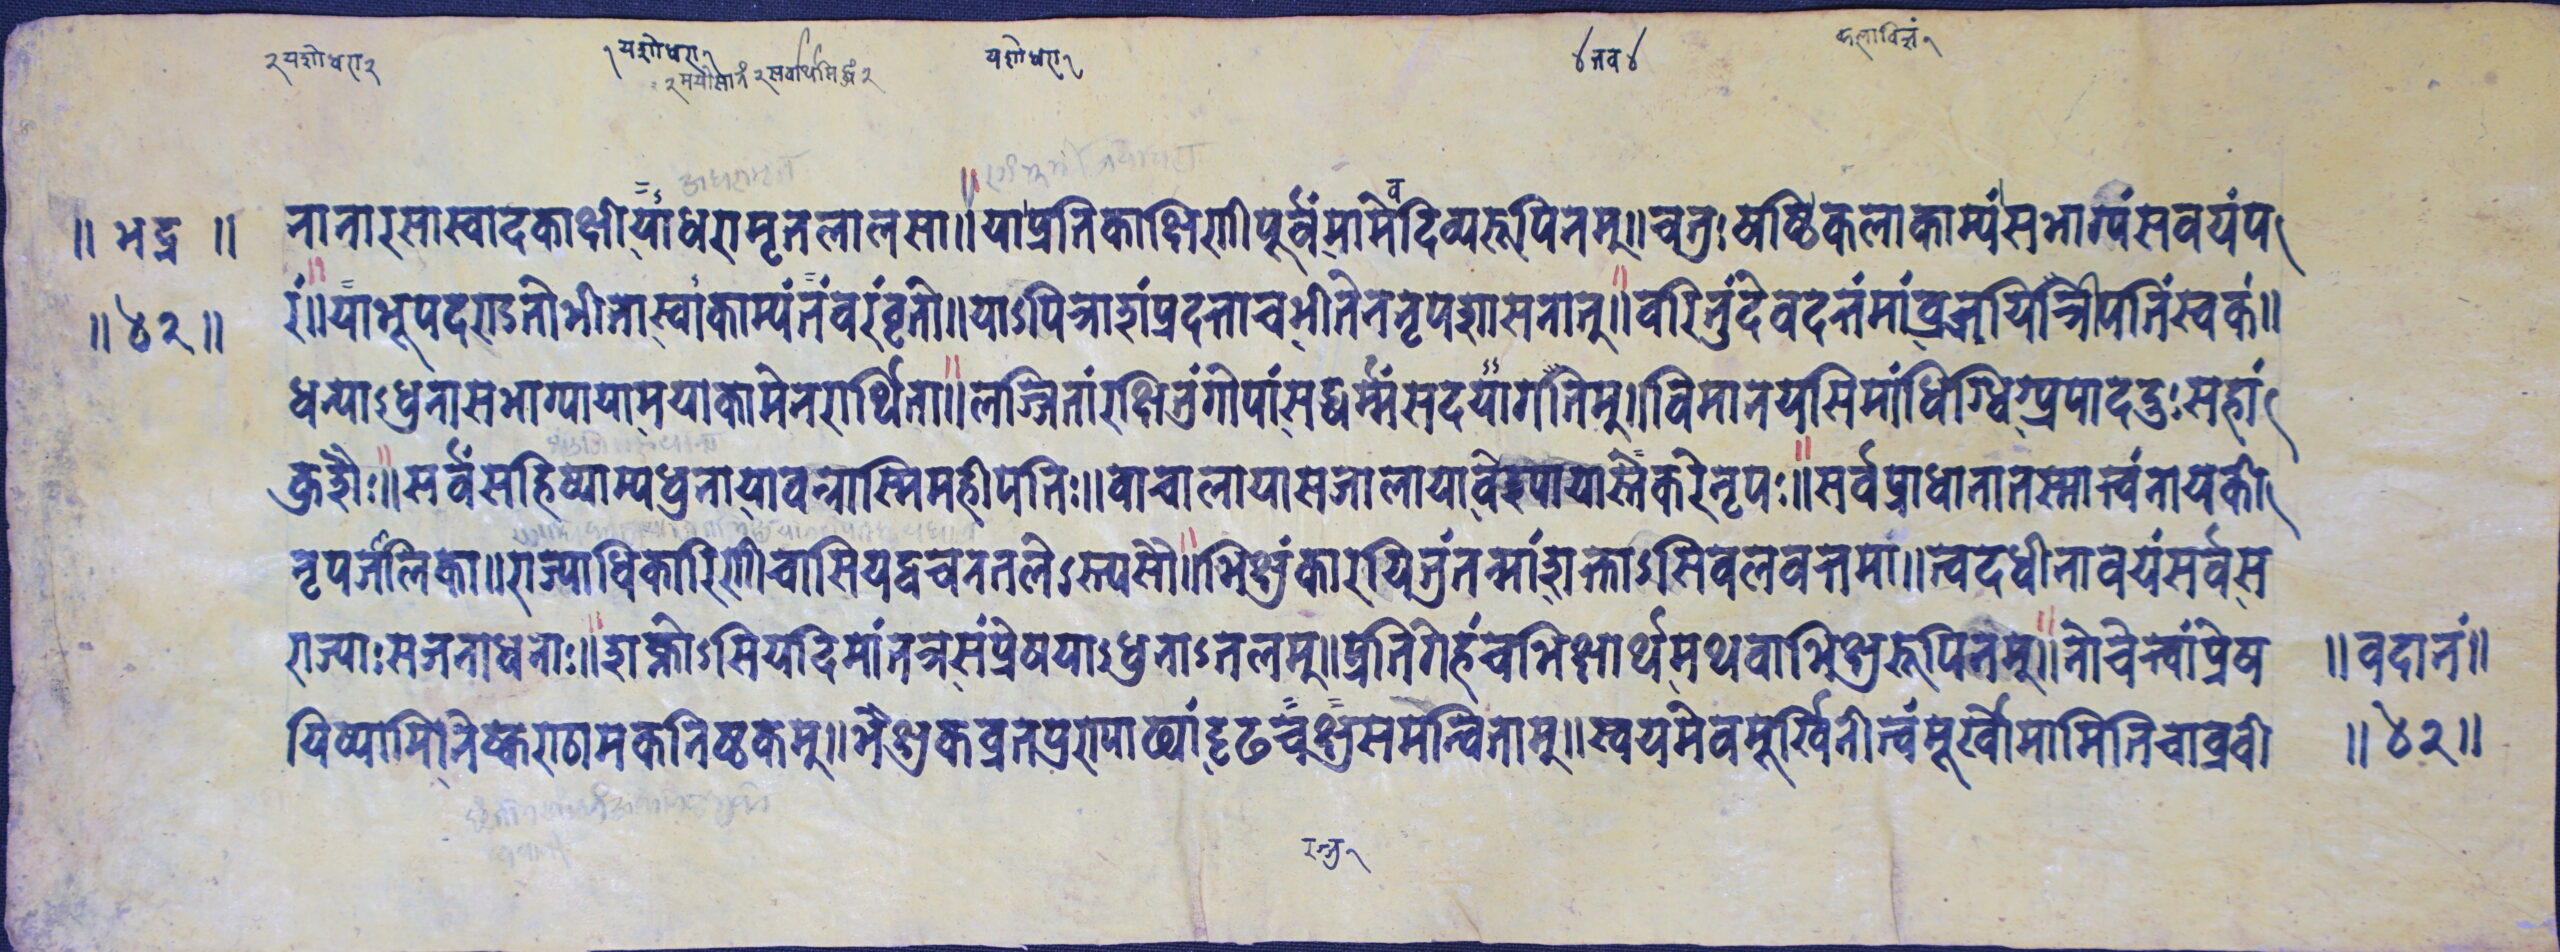 २ यशोधरा २
१ यशोधरा १
२ सर्वार्थसिद्धं २
यशोधरा १
४ तव ४
कलाविज्ञं १
॥ भद्र ॥
नानारसास्वादकाक्षी याधरामृतलालसा॥ याप्रतिकाक्षिणी पूर्वं मामेवदिव्यरूपिनम्॥ चतुःषष्ठिकलाकाम्यं सभाग्यं सवयंप
॥ ४२ ॥
रं॥ याभूपदराऽतीभीता स्वाकाम्यं तं वरं वृती॥ याऽपित्राज्ञां प्रदत्ताच भीतेन नृपशासनात्॥ वरितुं देवदत्तं मां व्रजयित्री पतिं स्वकं॥
धन्याऽधुना सभाग्याया मया कामेनरार्थिता॥ लज्जितां रक्षितुं गोपां सद्धर्म्मं सदयागतिम्॥ विमानयसि मां धिग्धिग् प्रपाद दुःसहां
कुशैः॥ सर्वं सहिष्याम्यधुना यावन्नास्मि महीपतिः॥ वाचालाया सजालाया वेश्याया स्तेकरे नृपः॥ सर्वप्राधानातस्मात्त्वं नायकी
नृपर्जलिका॥ राज्याधिकारिणी चासि यद्वचनतलेऽस्त्यसौ॥ भिक्षुं कारयितुं तन्मां शक्ताऽसि वलवत्तमा॥ त्वदधीना वयं सर्वे स
राज्याः सजना धनाः॥ शक्तोऽसि यदि मां तत्र संप्रेषयाऽधुनाऽतलम्॥ प्रतिगेहं च भिक्षार्थमथवा भिक्षुरूपिनम्॥ नोचेत्त्वां प्रेष
॥ वदानं ॥
यिष्यामि नैष्केराठामकनिष्ठकम्॥ भैक्षुकव्रतप्ररोपाढ्यां दृढचक्षुसमन्विताम्॥ स्वयमेव मूर्खिनी त्वं मूर्खो मामिति चाव्रवी
॥ ४२ ॥